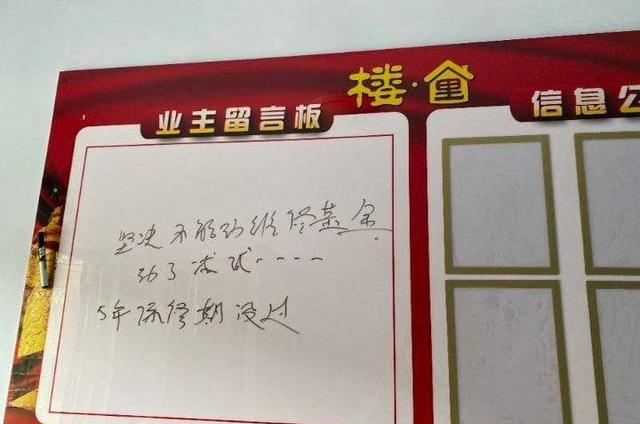 楼·宣
业主留言板
信息公
坚决不能动维修基金
动了求试····
5年保修期没过